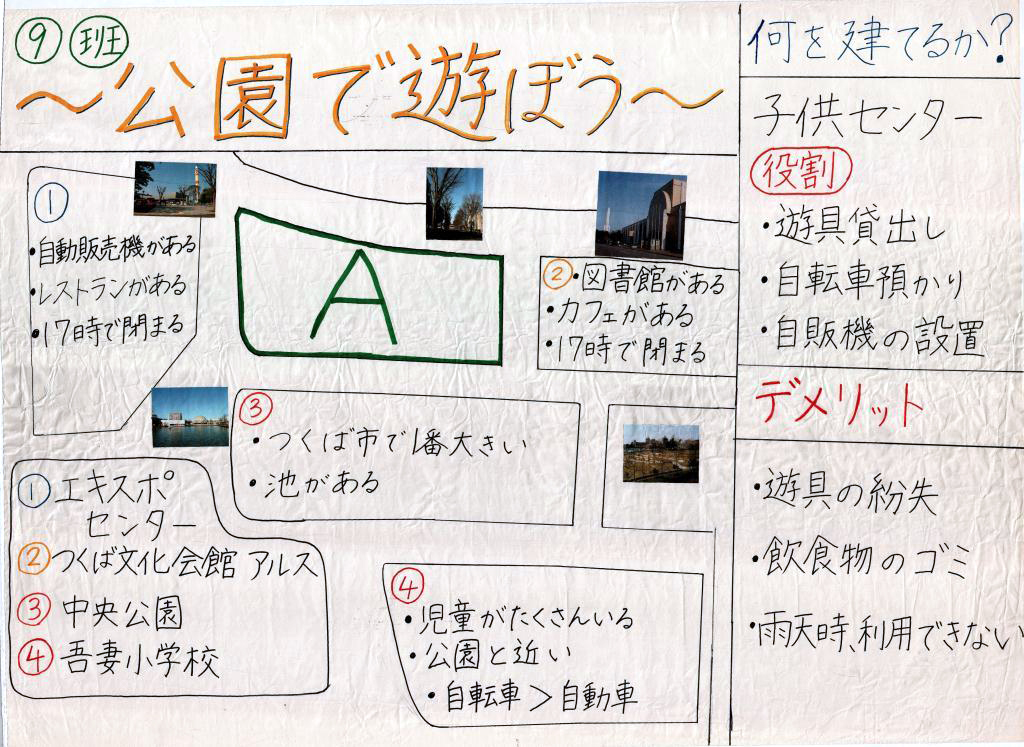 ⑨ 班
～公園で遊ぼう～
①
・自動販売機がある
・レストランがある
・17時で閉まる
A
② ・図書館がある
・カフェがある
・17時で閉まる
③
・つくば市で1番大きい
・池がある
① エキスポ
センター
② つくば文化会館 アルス
③ 中央公園
④ 吾妻小学校
④
・児童がたくさんいる
・公園と近い
・自転車 > 自動車
何を建てるか?
子供センター
役割
・遊具貸出し
・自転車預かり
・自販機の設置
デメリット
・遊具の紛失
・飲食物のゴミ
・雨天時、利用できない